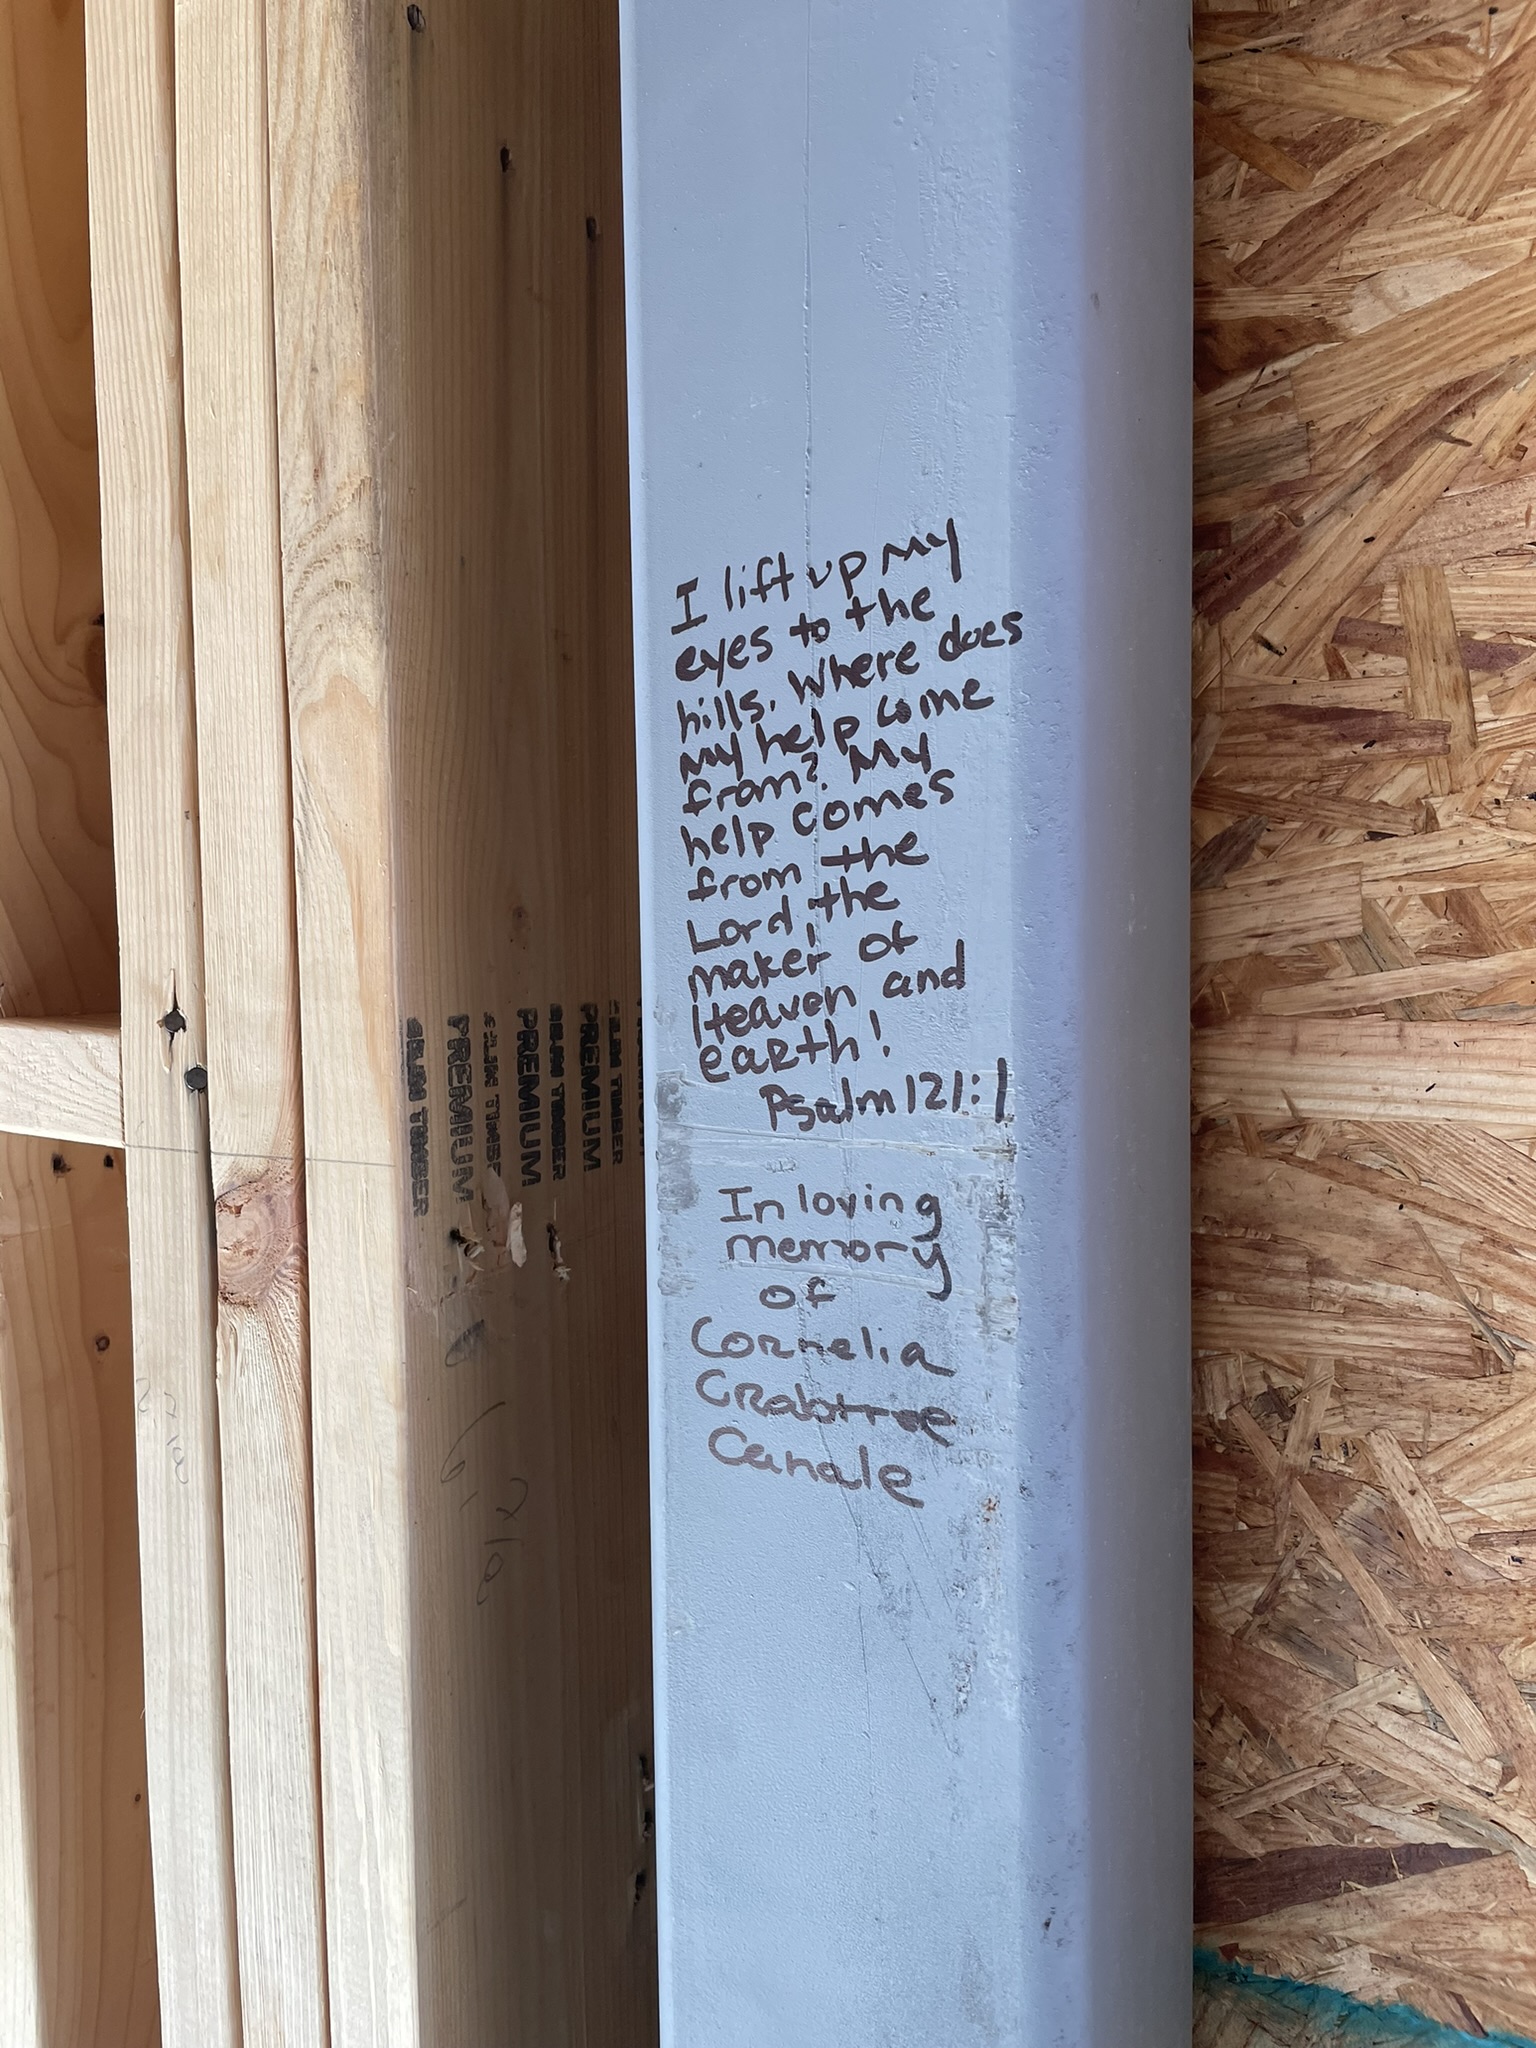 I lift up my
eyes to the
hills. Where does
my help come
from? My
help comes
from the
Lord, the
maker of
Heaven and
earth!
Psalm 121:1
In loving
memory
of
Cornelia
Crabtree
Canale
PREMIUM
PREMIUM
TIMBER
PREMIUM
TIMBER